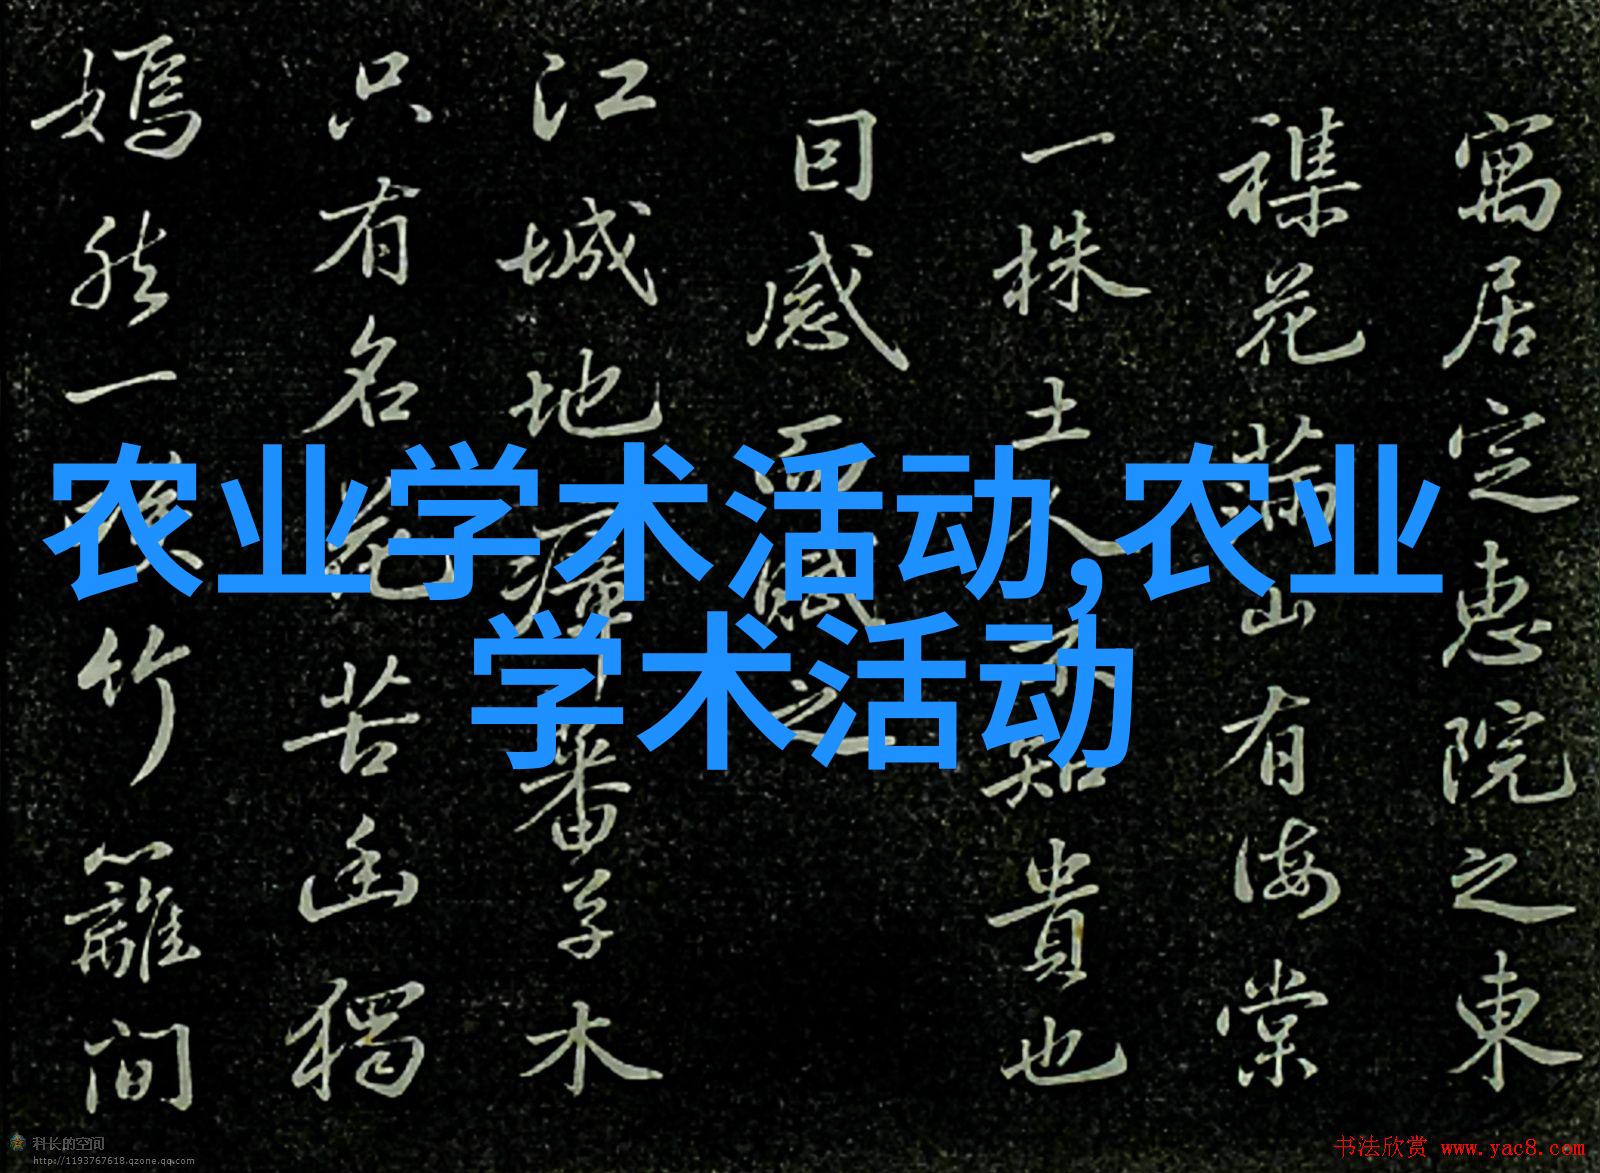 寓居定惠院之東
襍花滿山有海棠
一株土人不知貴也
囙感而賦之
江城地瘴蕃草木
只有名花苦幽獨
嫣然一笑竹籬間
农业学术活动,农业
学术活动
科长的空间
http://1193767618.qzone.qq.com
书法欣赏 www.yac8.com